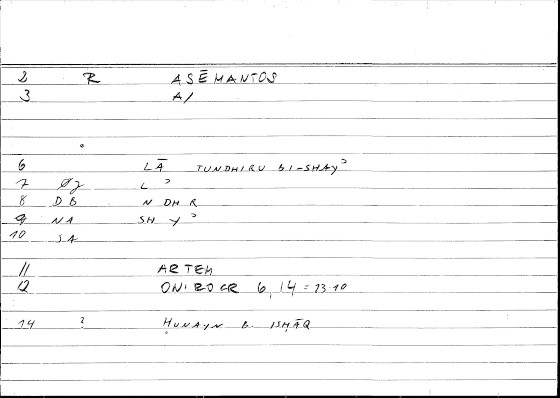 2 R ASĒMANTOS
3 A/
6 LĀ TUNDHIRU BI-SHAYʾ
7 Øz L ʾ
8 DB N DH R
9 NA SH Y ʾ
10 JA
11 ARTEM
12 ONIROCR 6,14 = 13.10
14 ? ḤUNAYN B. ISḤĀQ